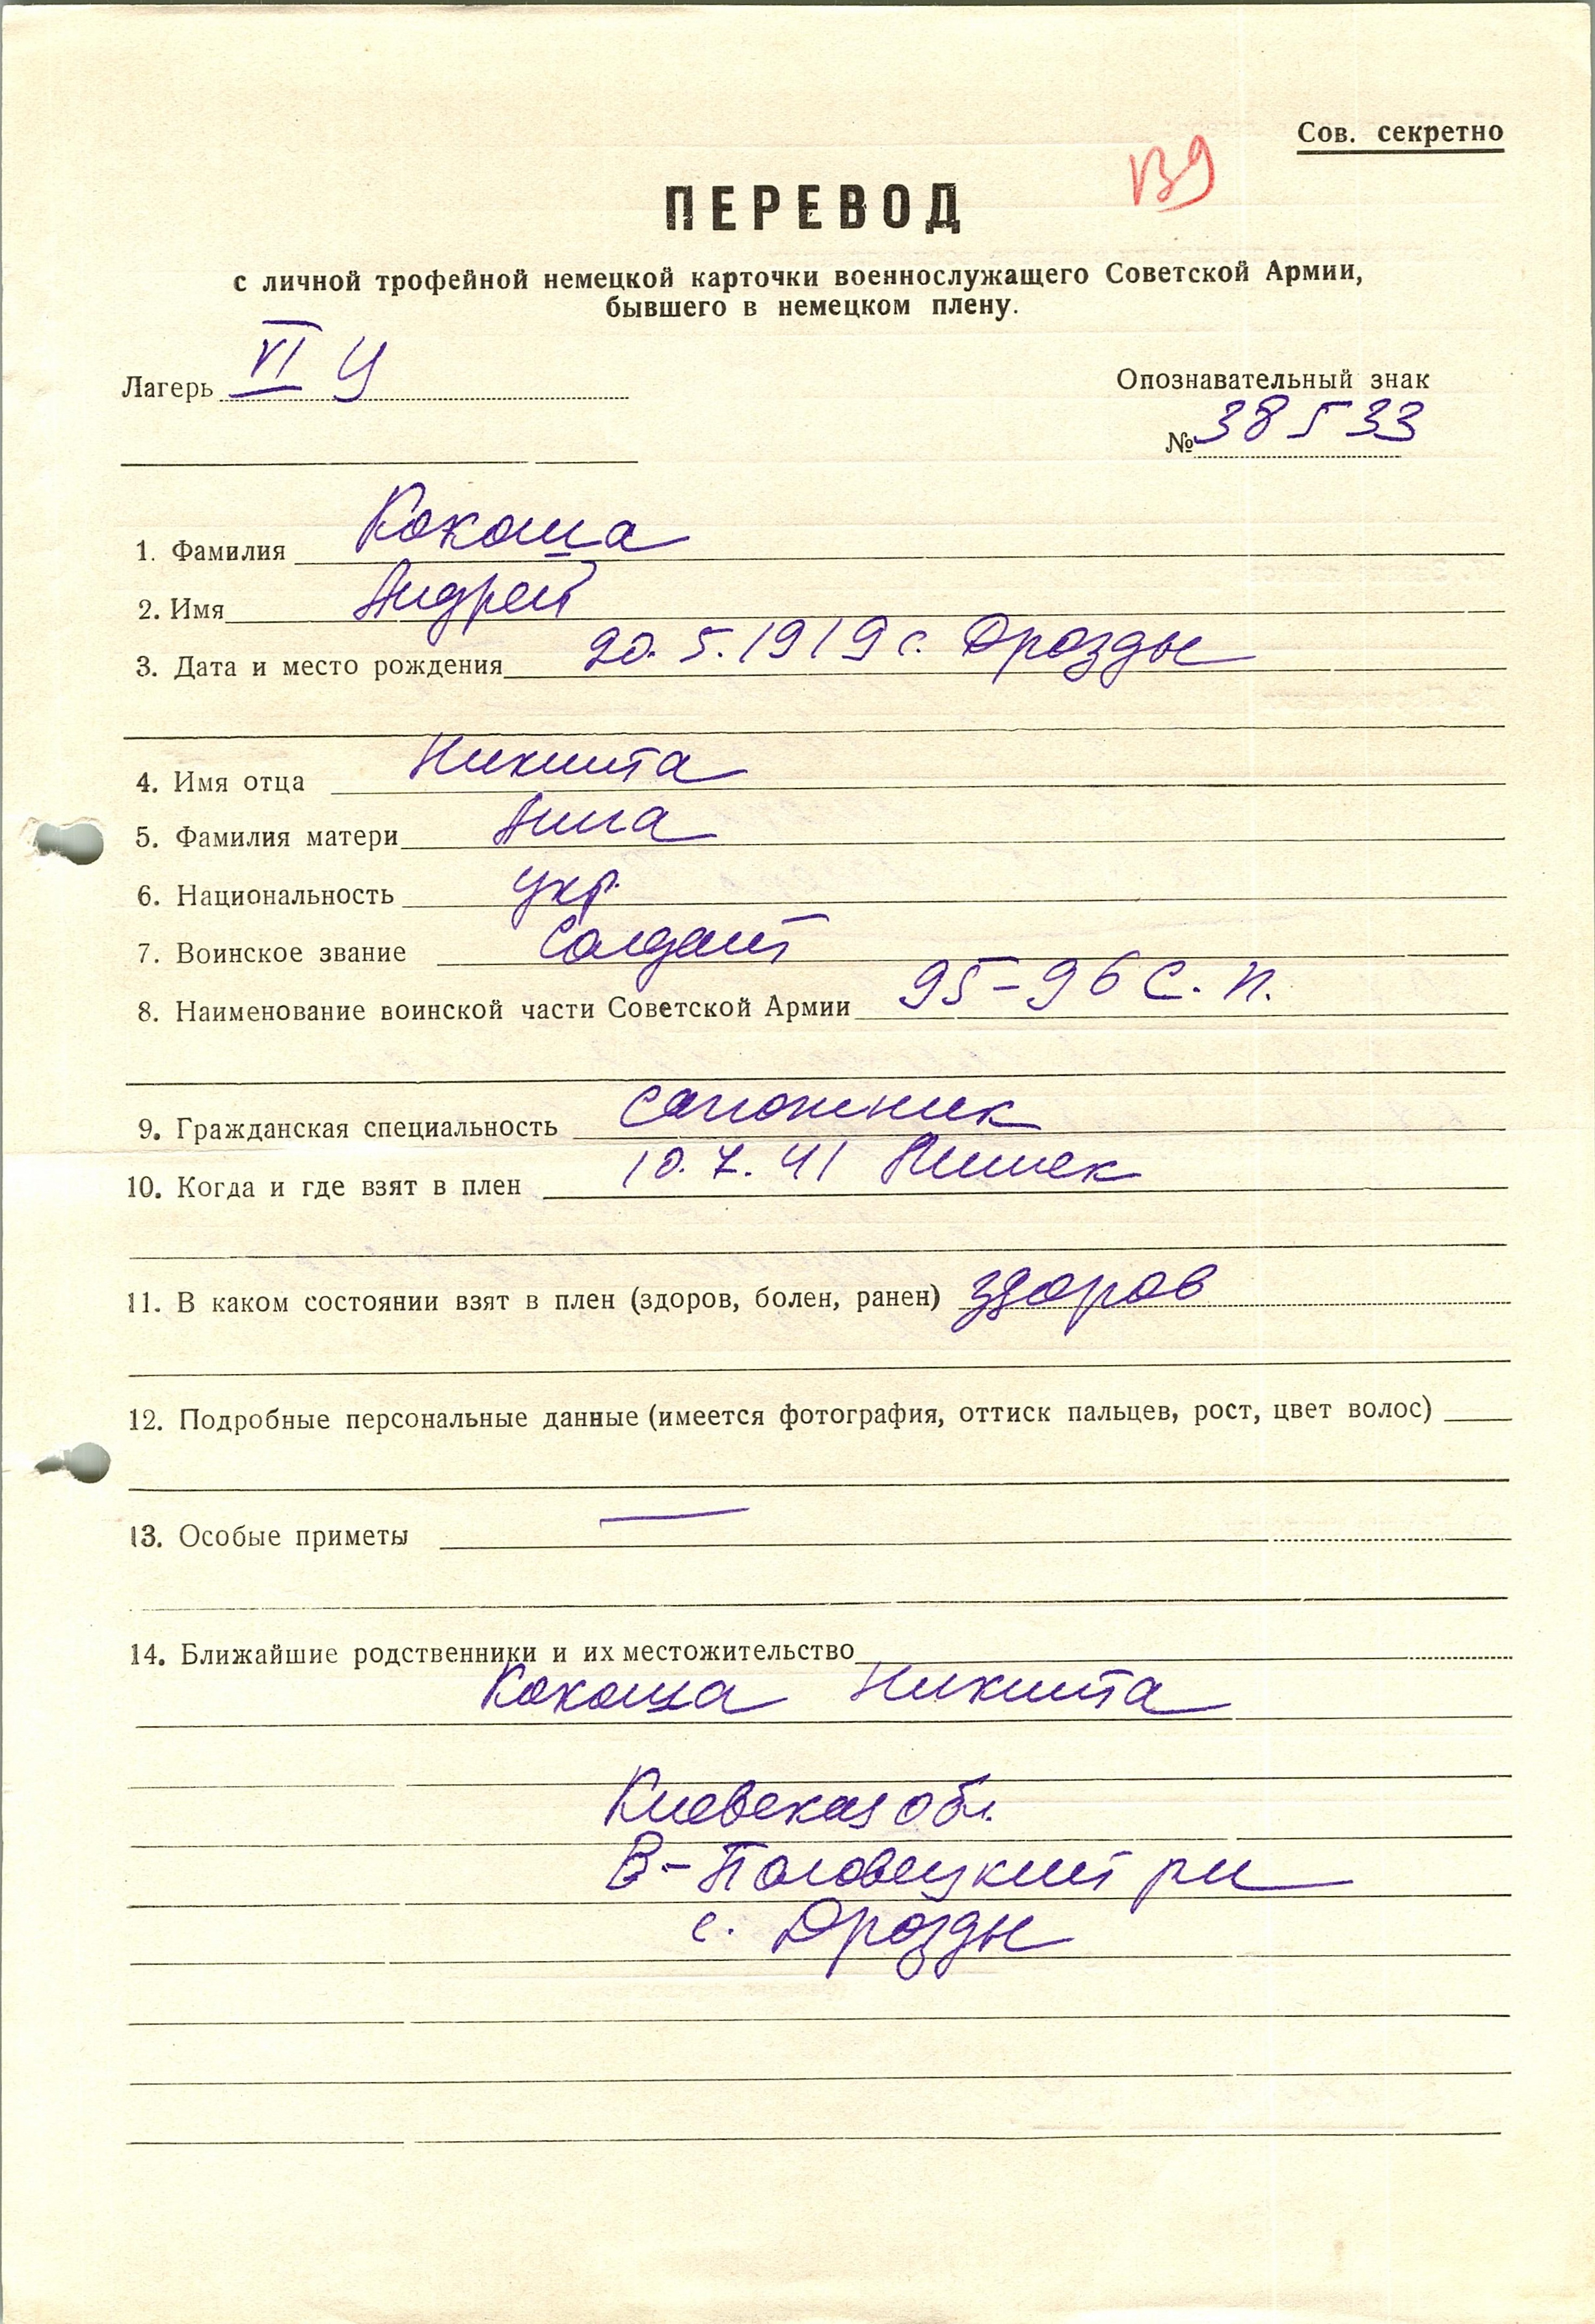 Сов. секретно
ПЕРЕВОД
с личной трофейной немецкой карточки военнослужащего Советской Армии,
бывшего в немецком плену.
Лагерь VI
Опознавательный знак
№ 38533
1. Фамилия Кокоша
2. Имя Андрей
3. Дата и место рождения 20.5.1919 с. Дрозды
4. Имя отца Никита
5. Фамилия матери Анна
6. Национальность укр.
7. Воинское звание Солдат
8. Наименование воинской части Советской Армии 95-96 С. П.
9. Гражданская специальность сапожник
10. Когда и где взят в плен 10.7.41
11. В каком состоянии взят в плен (здоров, болен, ранен) здоров
12. Подробные персональные данные (имеется фотография, оттиск пальцев, рост, цвет волос)
13. Особые приметы —
14. Ближайшие родственники и их местожительство
Кокоша Никита
Киевская обл.
В-Половецкий рн
с. Дрозды